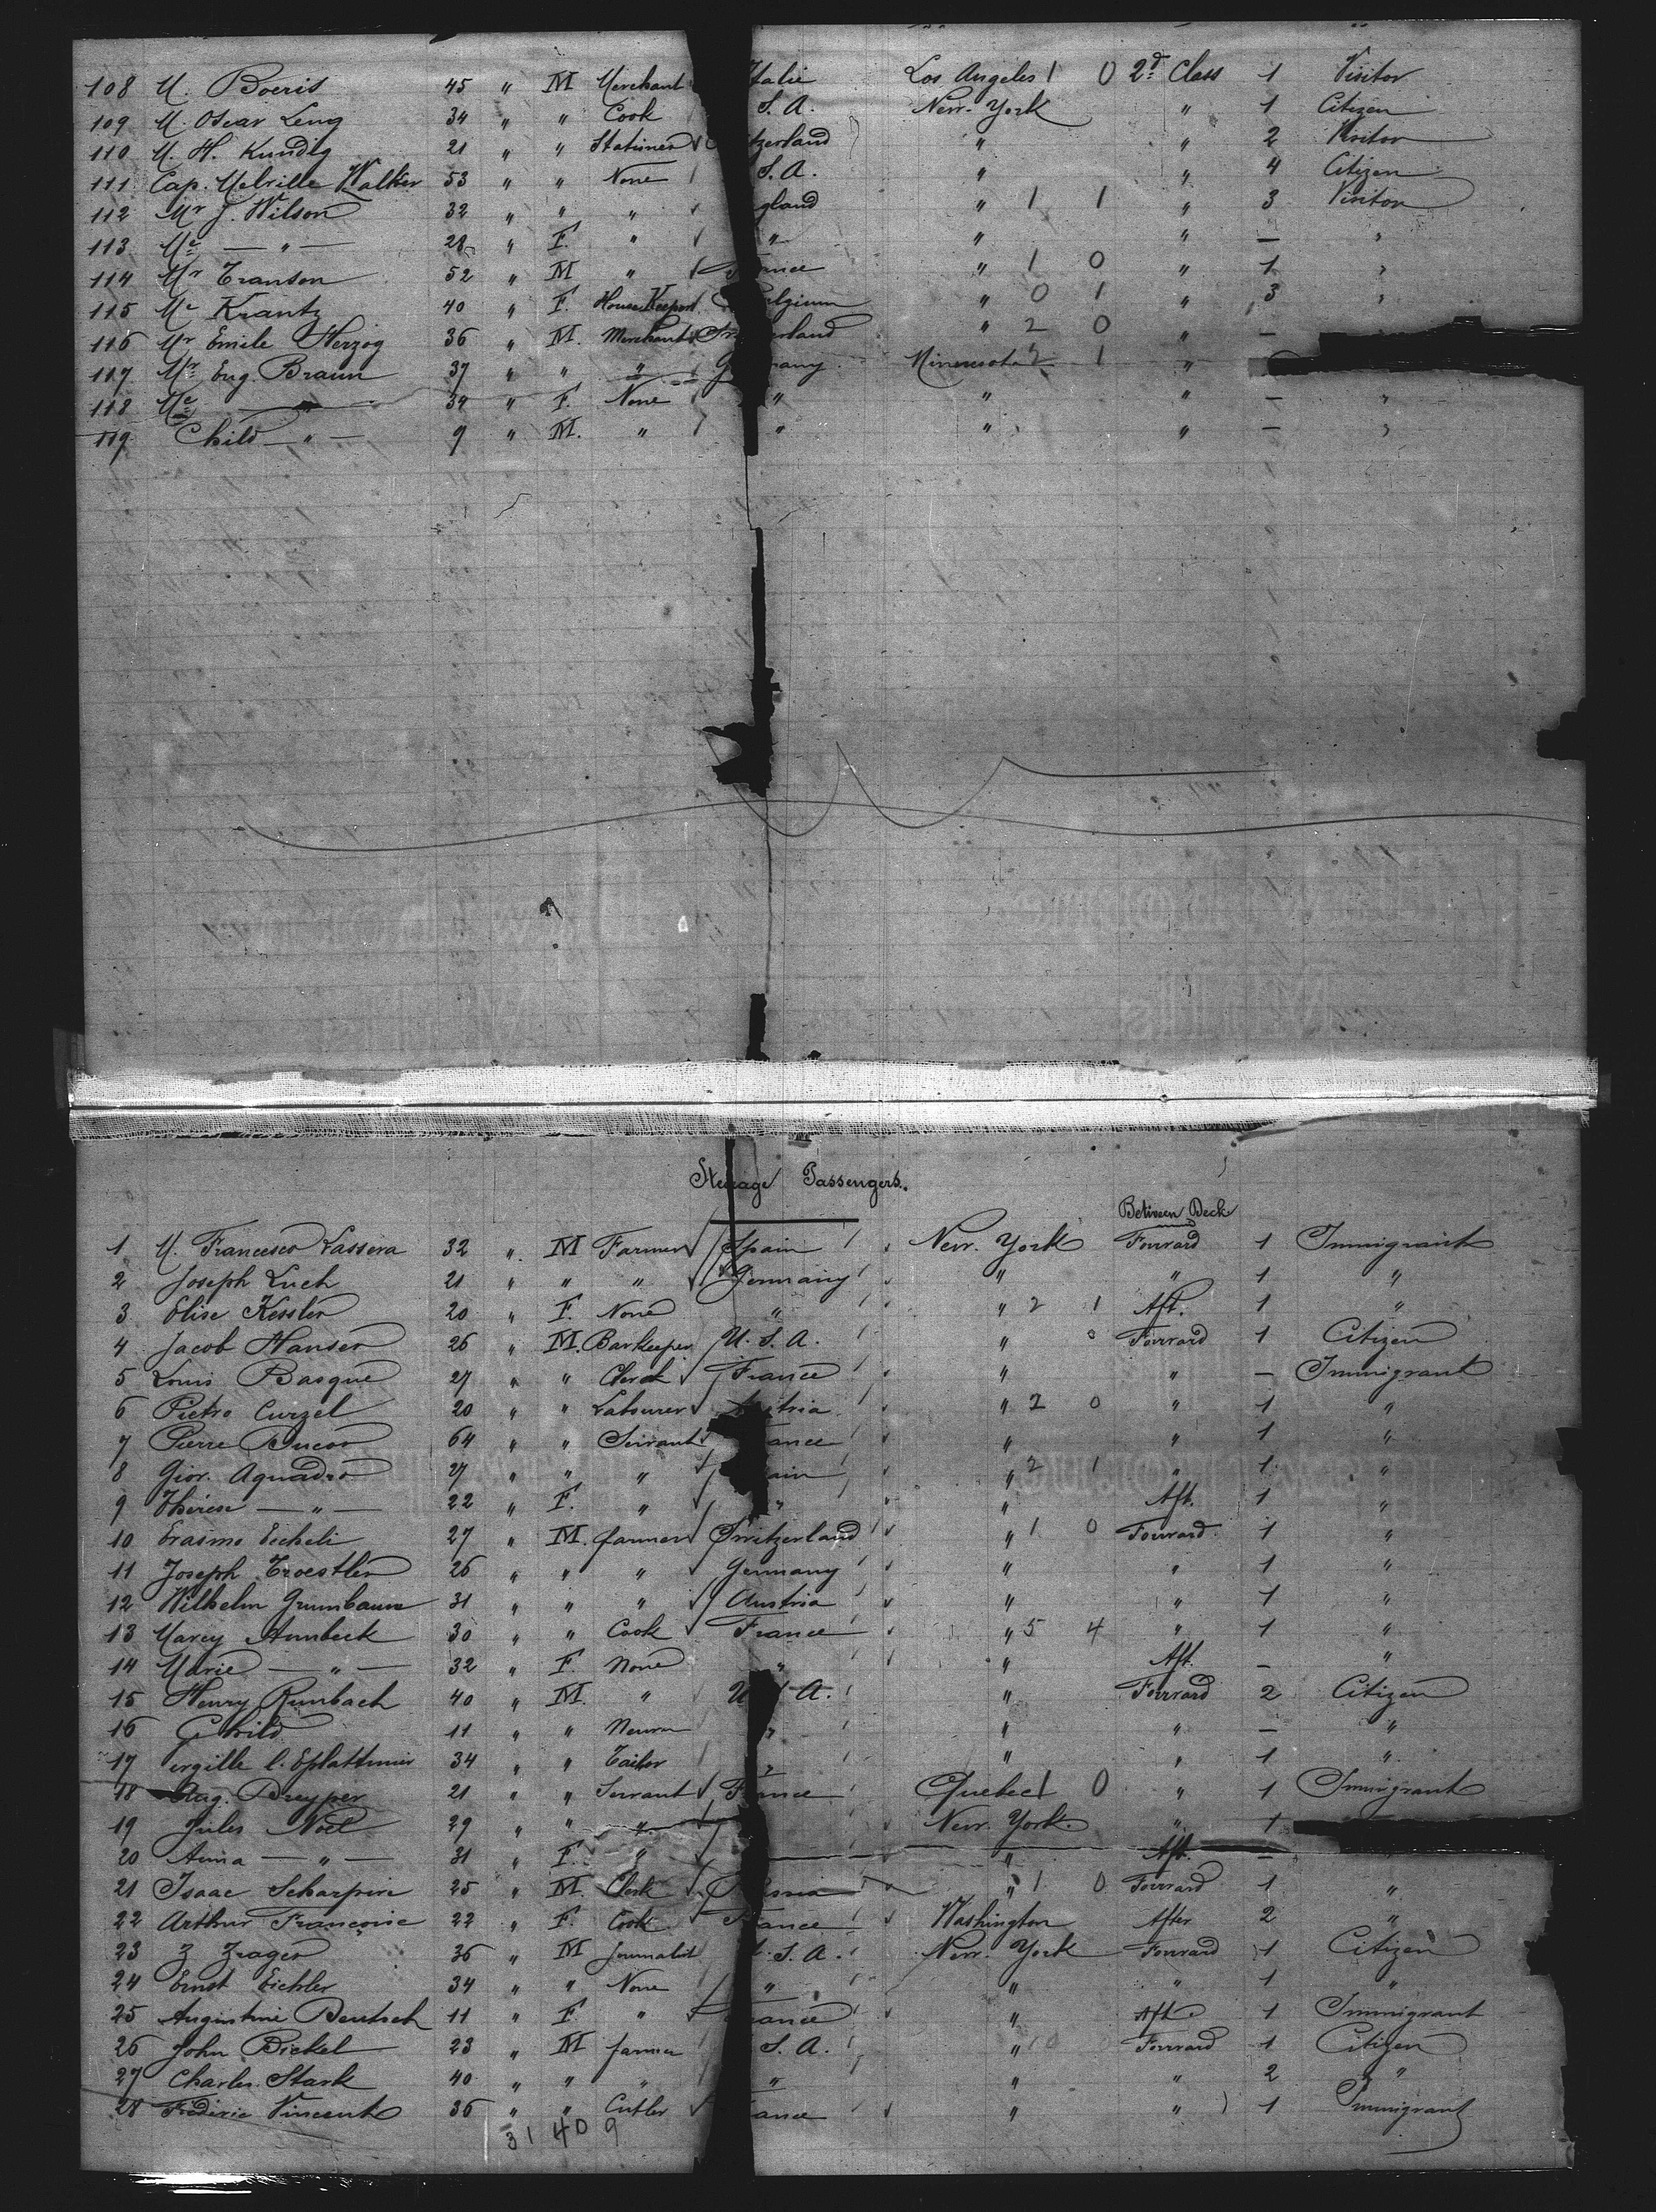 108 M. Boeris 45 " M Merchant Italie Los Angeles 1 0 2d Class 1 Visitor
109 M. Oscar Leng 34 " " Cook S. A. New. York " 1 Citizen
110 M. H. Kundig 21 " " Stationer tzerland " " 2 Visitor
111 Cap. Melville Walker 53 " " None S. A. " " 4 Citizen
112 Mr J. Wilson 32 " " " gland " 1 1 " 3 Visitor
113 Me — " — 28 " F. " " " " — "
114 Mr Transon 52 " M " France " 1 0 " 1 "
115 Me Krantz 40 " F. House Keeper Belgium " 0 1 " 3 "
116 Mr Emile Herzog 36 " M. Merchant Sw erland " 2 0 " —
117 Mr Eug. Braun 37 " " " G many Minnesota 2 1 "
118 Me — " — 34 " F. None " " " — "
119 Child — " — 9 " M. " " " " — "
Steerage Passengers.
Between Deck
1 M. Francesco Lassera 32 " M Farmer Spain New. York Forward 1 Immigrant
2 Joseph Luch 21 " " " Germany " " 1 "
3 Elise Kessler 20 " F. None " " 2 1 Aft. 1 "
4 Jacob Hanser 26 " M. Barkeeper U. S. A. " 0 Forward 1 Citizen
5 Louis Basque 27 " " Clerck France " " — Immigrant
6 Pietro Curzel 20 " " Labourer Austria " 2 0 " 1 "
7 Pierre Ducor 64 " " Servant ance " " 1 "
8 Gior. Aquadro 27 " " " ain " 2 1 " 1 "
9 Thérèse — " — 22 " F. " " " Aft. 1 "
10 Erasmo Eicheli 27 " M. farmer Switzerland " 1 0 Forward 1 "
11 Joseph Troestler 26 " " " Germany " " 1 "
12 Wilhelm Grumbaum 31 " " " Austria " " 1 "
13 Marcy Armbeck 30 " " Cook France " 5 4 " 1 "
14 Marie — " — 32 " F. None " " Aft. — "
15 Henry Rumbach 40 " M. " U A. " Forward 2 Citizen
16 Child 11 " " " " " — "
17 34 " " Tailor " " " 1 "
18 Aug. Dreyper 21 " " Servant France Quebec 1 0 " 1 Immigrant
19 Jules Noël 29 " " " New. York. " 1
20 Anna — " — 31 " F. " " Aft. — "
21 Isaac Scharpire 25 " M. Clerk ssia " 1 0 Forward 1 "
22 Arthur Francoise 22 " F. Cook France Washington After 2 "
23 Z Zrager 36 " M Journalist . S. A. New. York Forward 1 Citizen
24 Ernst Eichler 34 " " None " " " 1 "
25 Augustine Bentsch 11 " F. " ance " Aft. 1 Immigrant
26 John Bickel 23 " M farmer S. A. " 1 0 Forward 1 Citizen
27 Charles Stark 40 " " " " " " 2 "
28 Frederic Vincent 36 " " Cutler ance " " 1 Immigrant
31 40 9